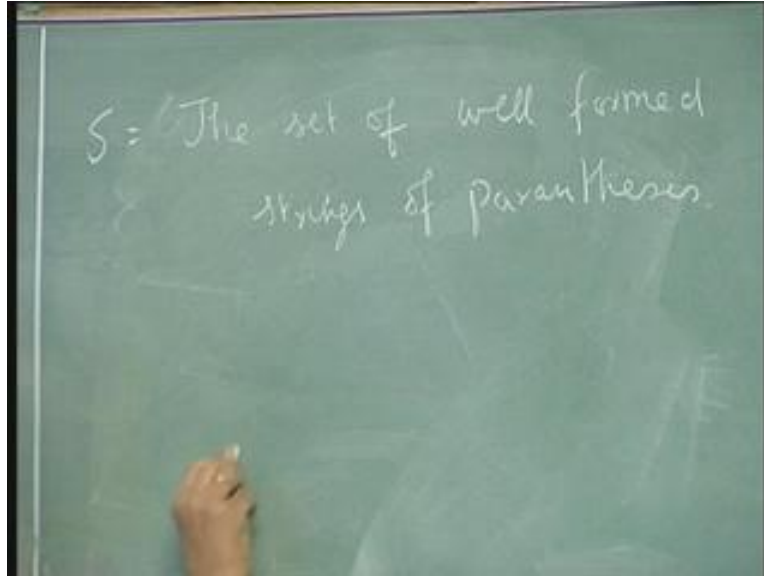 S = The set of well formed
strings of parantheses.